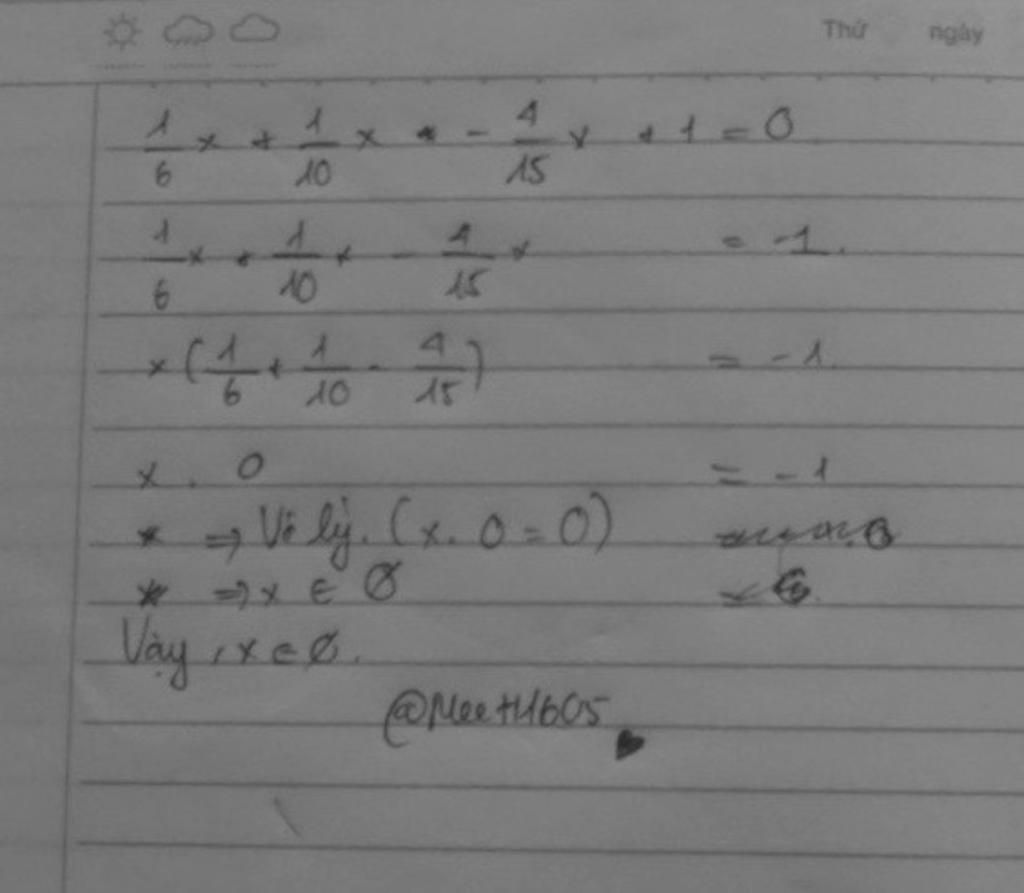 Thứ ngày
1/6 x + 1/10 x - 4/15 x + 1 = 0
1/6 x + 1/10 x - 4/15 x = -1.
x (1/6 + 1/10 - 4/15) = -1.
x . 0 = -1
⇒ Vô lý. (x. 0 = 0)
⇒ x ∈ Ø
Vậy, x ∈ Ø.